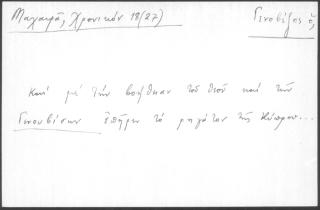 Μαχαιρᾶ, Χρονικόν 18 (27) Γενοβέζος ὁ,
Καὶ μὲ τὴν βοήθειαν τοῦ θεοῦ καὶ τῶν
Γενουβίσων ἐπῆρεν τὸ ρηγάτον τῆς Κύπρου...